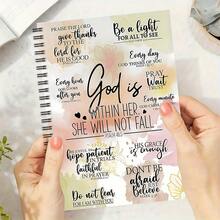 PRAISE THE LORD
give thanks to
THE LORD for
HE IS GOOD
Be a light
FOR ALL TO SEE
Every day
GOD THINKS OF YOU
Every hour
GOD LOOKS
after you
PRAY
WAIT
TRUST
Every minute
GOD CARES
God is
WITHIN HER
SHE WILL NOT FALL
PSALM 46:5
hope
PATIENT
IN TRIALS
faithful
IN PRAYER
HIS GRACE
is enough
Do not fear
FOR I AM WITH YOU
DON'T BE
AFRAID
believe